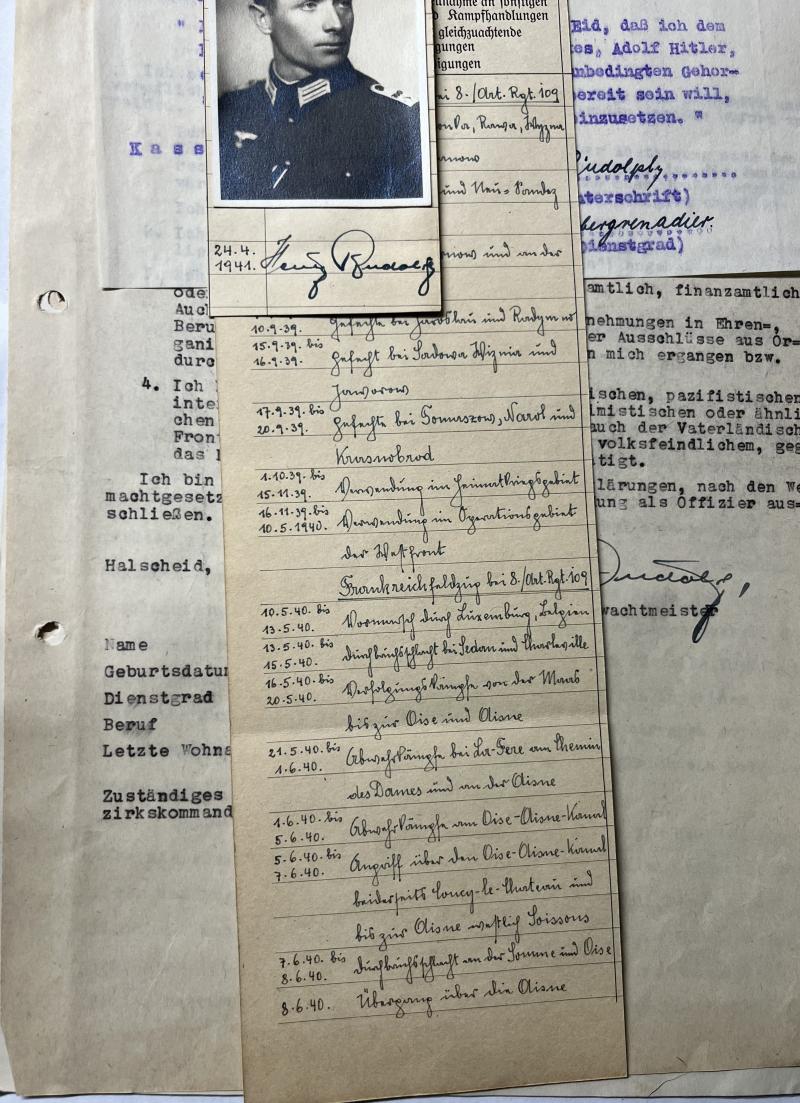 Eid, daß ich dem
Adolf Hitler,
nbedingten Gehor=
bereit sein will,
einzusetzen. "
Kass
Rudolphy
terschrift)
bergrenadier.
Dienstgrad)
nahme an sonstigen
Kampfhandlungen
gleichzuachtende
gungen
igungen
ei 8./Art.Rgt.109
Rawa, Wyznia
und Neu-Sandez
rnow und an der
24.4.
1941.
Rudolphy
10.9.39. Gefechte bei Jaroslau und Radymno
15.9.39. bis
16.9.39. Gefecht bei Sadowa Wiznia und
Jaworow
17.9.39. bis
20.9.39. Gefechte bei Tomaszow, Narol und
Krasnobrod
1.10.39. bis
15.11.39. Verwendung im Heimatkriegsgebiet
16.11.39. bis
10.5.1940. Verwendung im Operationsgebiet
der Westfront
Frankreichfeldzug bei 8./Art.Rgt.109
10.5.40. bis
13.5.40. Vormarsch durch Luxemburg, Belgien
13.5.40. bis
15.5.40. Durchbruchsschlacht bei Sedan und Charleville
16.5.40. bis
20.5.40. Verfolgungskämpfe von der Maas
bis zur Oise und Aisne
21.5.40. bis
1.6.40. Abwehrkämpfe bei La-Fere am Chemin
des Dames und an der Aisne
1.6.40. bis
5.6.40. Abwehrkämpfe am Oise-Aisne-Kanal
5.6.40. bis
7.6.40. Angriff über den Oise-Aisne-Kanal
beiderseits Coucy-le-Chateau und
bis zur Aisne westlich Soissons
7.6.40. bis
8.6.40. Durchbruchsschlacht an der Somme und Oise
8.6.40. Übergang über die Aisne
ode
Auc
Beru
gani
durc
4. Ich
inte
chen
Fron
das
Ich bin
machtgesetz
schließen.
Halscheid,
Name
Geburtsdatu
Dienstgrad
Beruf
Letzte Wohn
Zuständiges
zirkskommand
amtlich, finanzamtlich
nehmungen in Ehren=,
er Ausschlüsse aus Or=
n mich ergangen bzw.
ischen, pazifistischen
imistischen oder ähnli
auch der Vaterländisch
volksfeindlichem, geg
tigt.
lärungen, nach den We
ung als Offizier aus=
wachtmeister